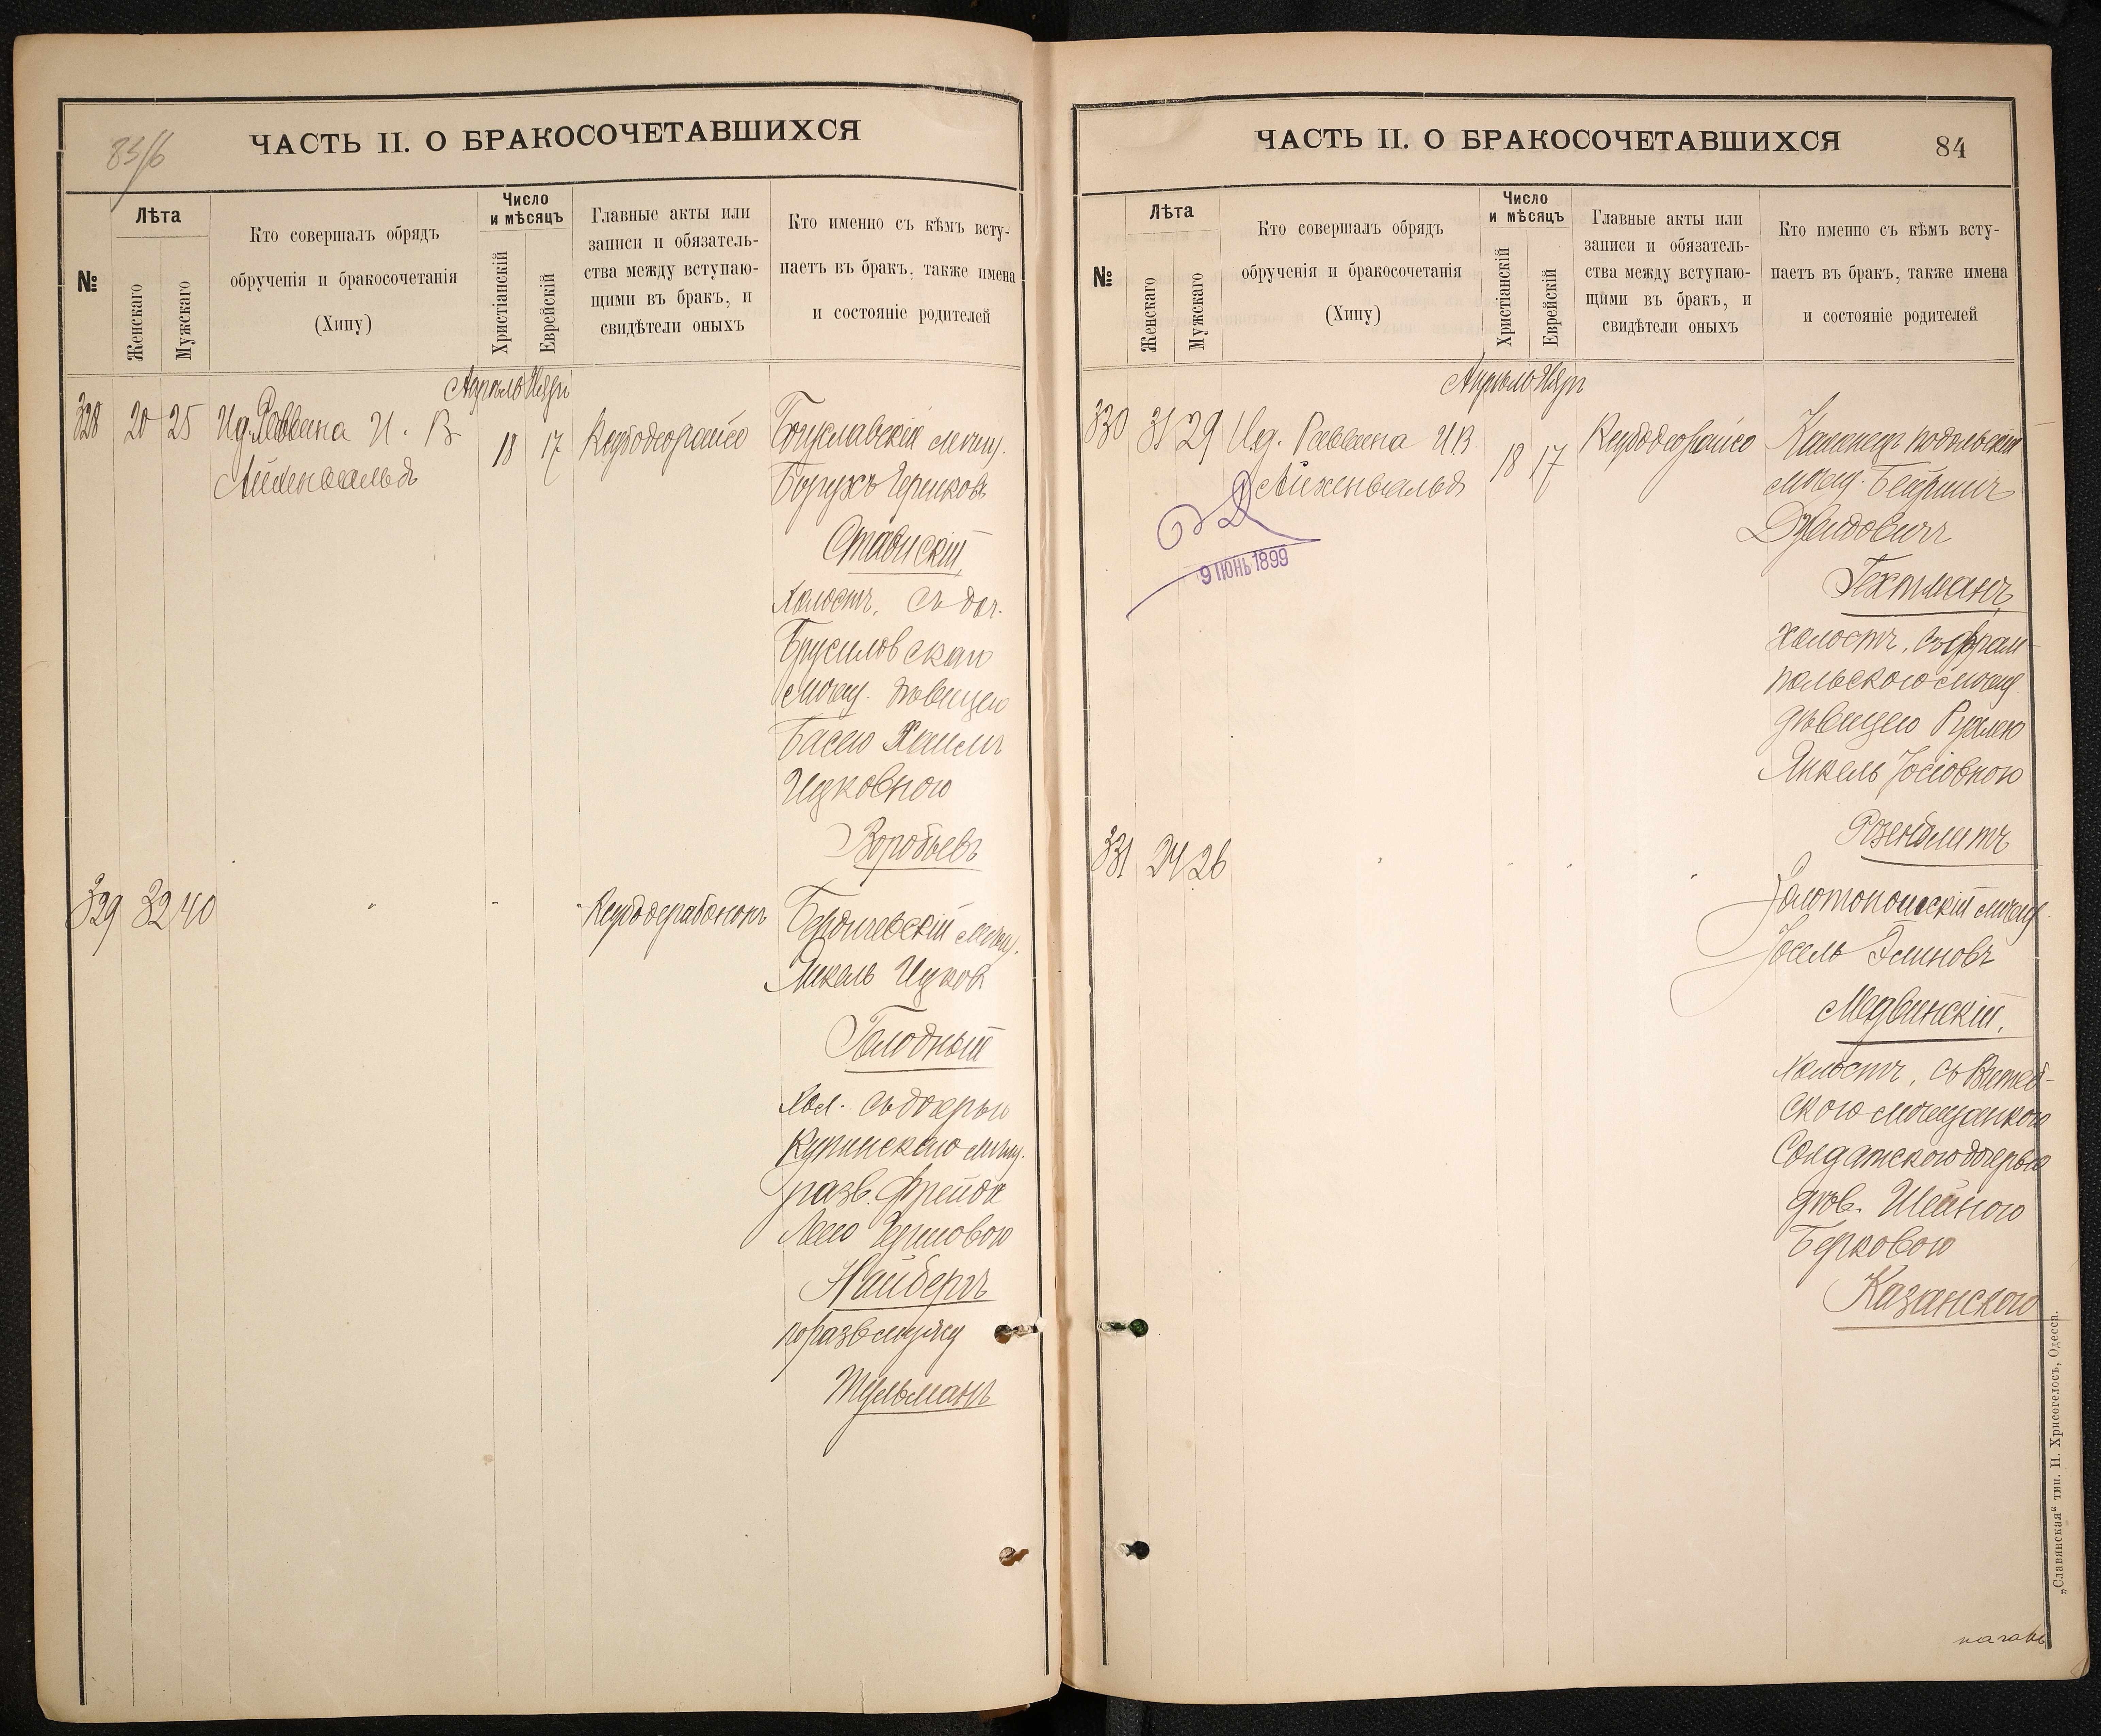 83/6
ЧАСТЬ II. О БРАКОСОЧЕТАВШИХСЯ
№
Лѣта
Женскаго
Мужскаго
Кто совершалъ обрядъ
обрученія и бракосочетанія
(Хипу)
Число
и мѣсяцъ
Христіанскій
Еврейскій
Главные акты или
записи и обязатель-
ства между вступаю-
щими въ бракъ, и
свидѣтели оныхъ
Кто именно съ кѣмъ всту-
паетъ въ бракъ, также имена
и состояніе родителей
Апрѣль Іяръ
328 20 25 Ид. Раввина И. В.
Айхенвальдъ
18 17
Ксубодеорайсо
Богуславскій мѣщ.
Борухъ Гершковъ
Ставискій,
холостъ, съ доч.
Брусиловскаго
мѣщ. дѣвицею
Басею Хаимъ
Ицковною
Воробьевъ
329 32 40 " " "
Ксубодерабононъ
Бердичевскій мѣщ.
Янкель Ицков
Голодный
хол. съ дочерью
Купинскаго мѣщ.
разв. Фрейда
Леею Гершовою
Найбергъ
по разв мужу
Тульманъ
ЧАСТЬ II. О БРАКОСОЧЕТАВШИХСЯ
84
№
Лѣта
Женскаго
Мужскаго
Кто совершалъ обрядъ
обрученія и бракосочетанія
(Хипу)
Число
и мѣсяцъ
Христіанскій
Еврейскій
Главные акты или
записи и обязатель-
ства между вступаю-
щими въ бракъ, и
свидѣтели оныхъ
Кто именно съ кѣмъ всту-
паетъ въ бракъ, также имена
и состояніе родителей
Апрѣль Іяръ
330 31 29 Ид. Раввина И.В.
Айхенвальдъ
9 ІЮНЬ 1899
18 17
Ксубодеорайсо
Каменецъ подольскій
мѣщ. Бейришъ
Дувидовичъ
Гехтманъ,
холостъ, съ Фрам-
польскою мѣщ.
дѣвицею Рухлею
Янкель Іосіовною
Розенблитъ
331 24 26 " " " "
Золотоношскій мѣщ.
Іосель Эліиновъ
Медвинскій,
холостъ, съ Витеб-
скою мѣщанкою
Солдатскою дочерью
дѣв. Шейною
Берковою
Казанскою
„Славянская“ тип. Н. Хрисогелосъ, Одесса.